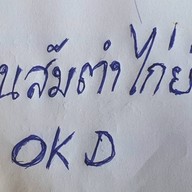 นส้มตำไก่ย
OKD